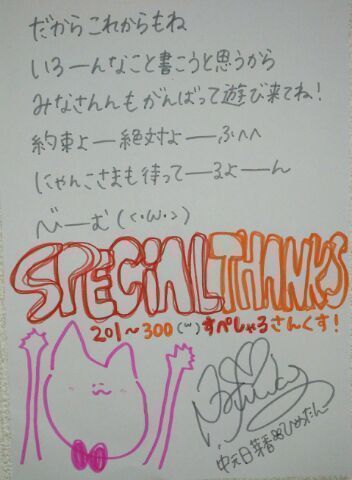 だからこれからもね
いろーんなこと書こうと思うから
みなさんんもがんばって遊び来てね！
約束よー絶対よーふへへ
にゃんこさまも待ってーるよーん
べーむ(<・ω・>)
SPECIAL THANKS
201～300(´ω`)すぺしゃるさんくす!
ひめたん